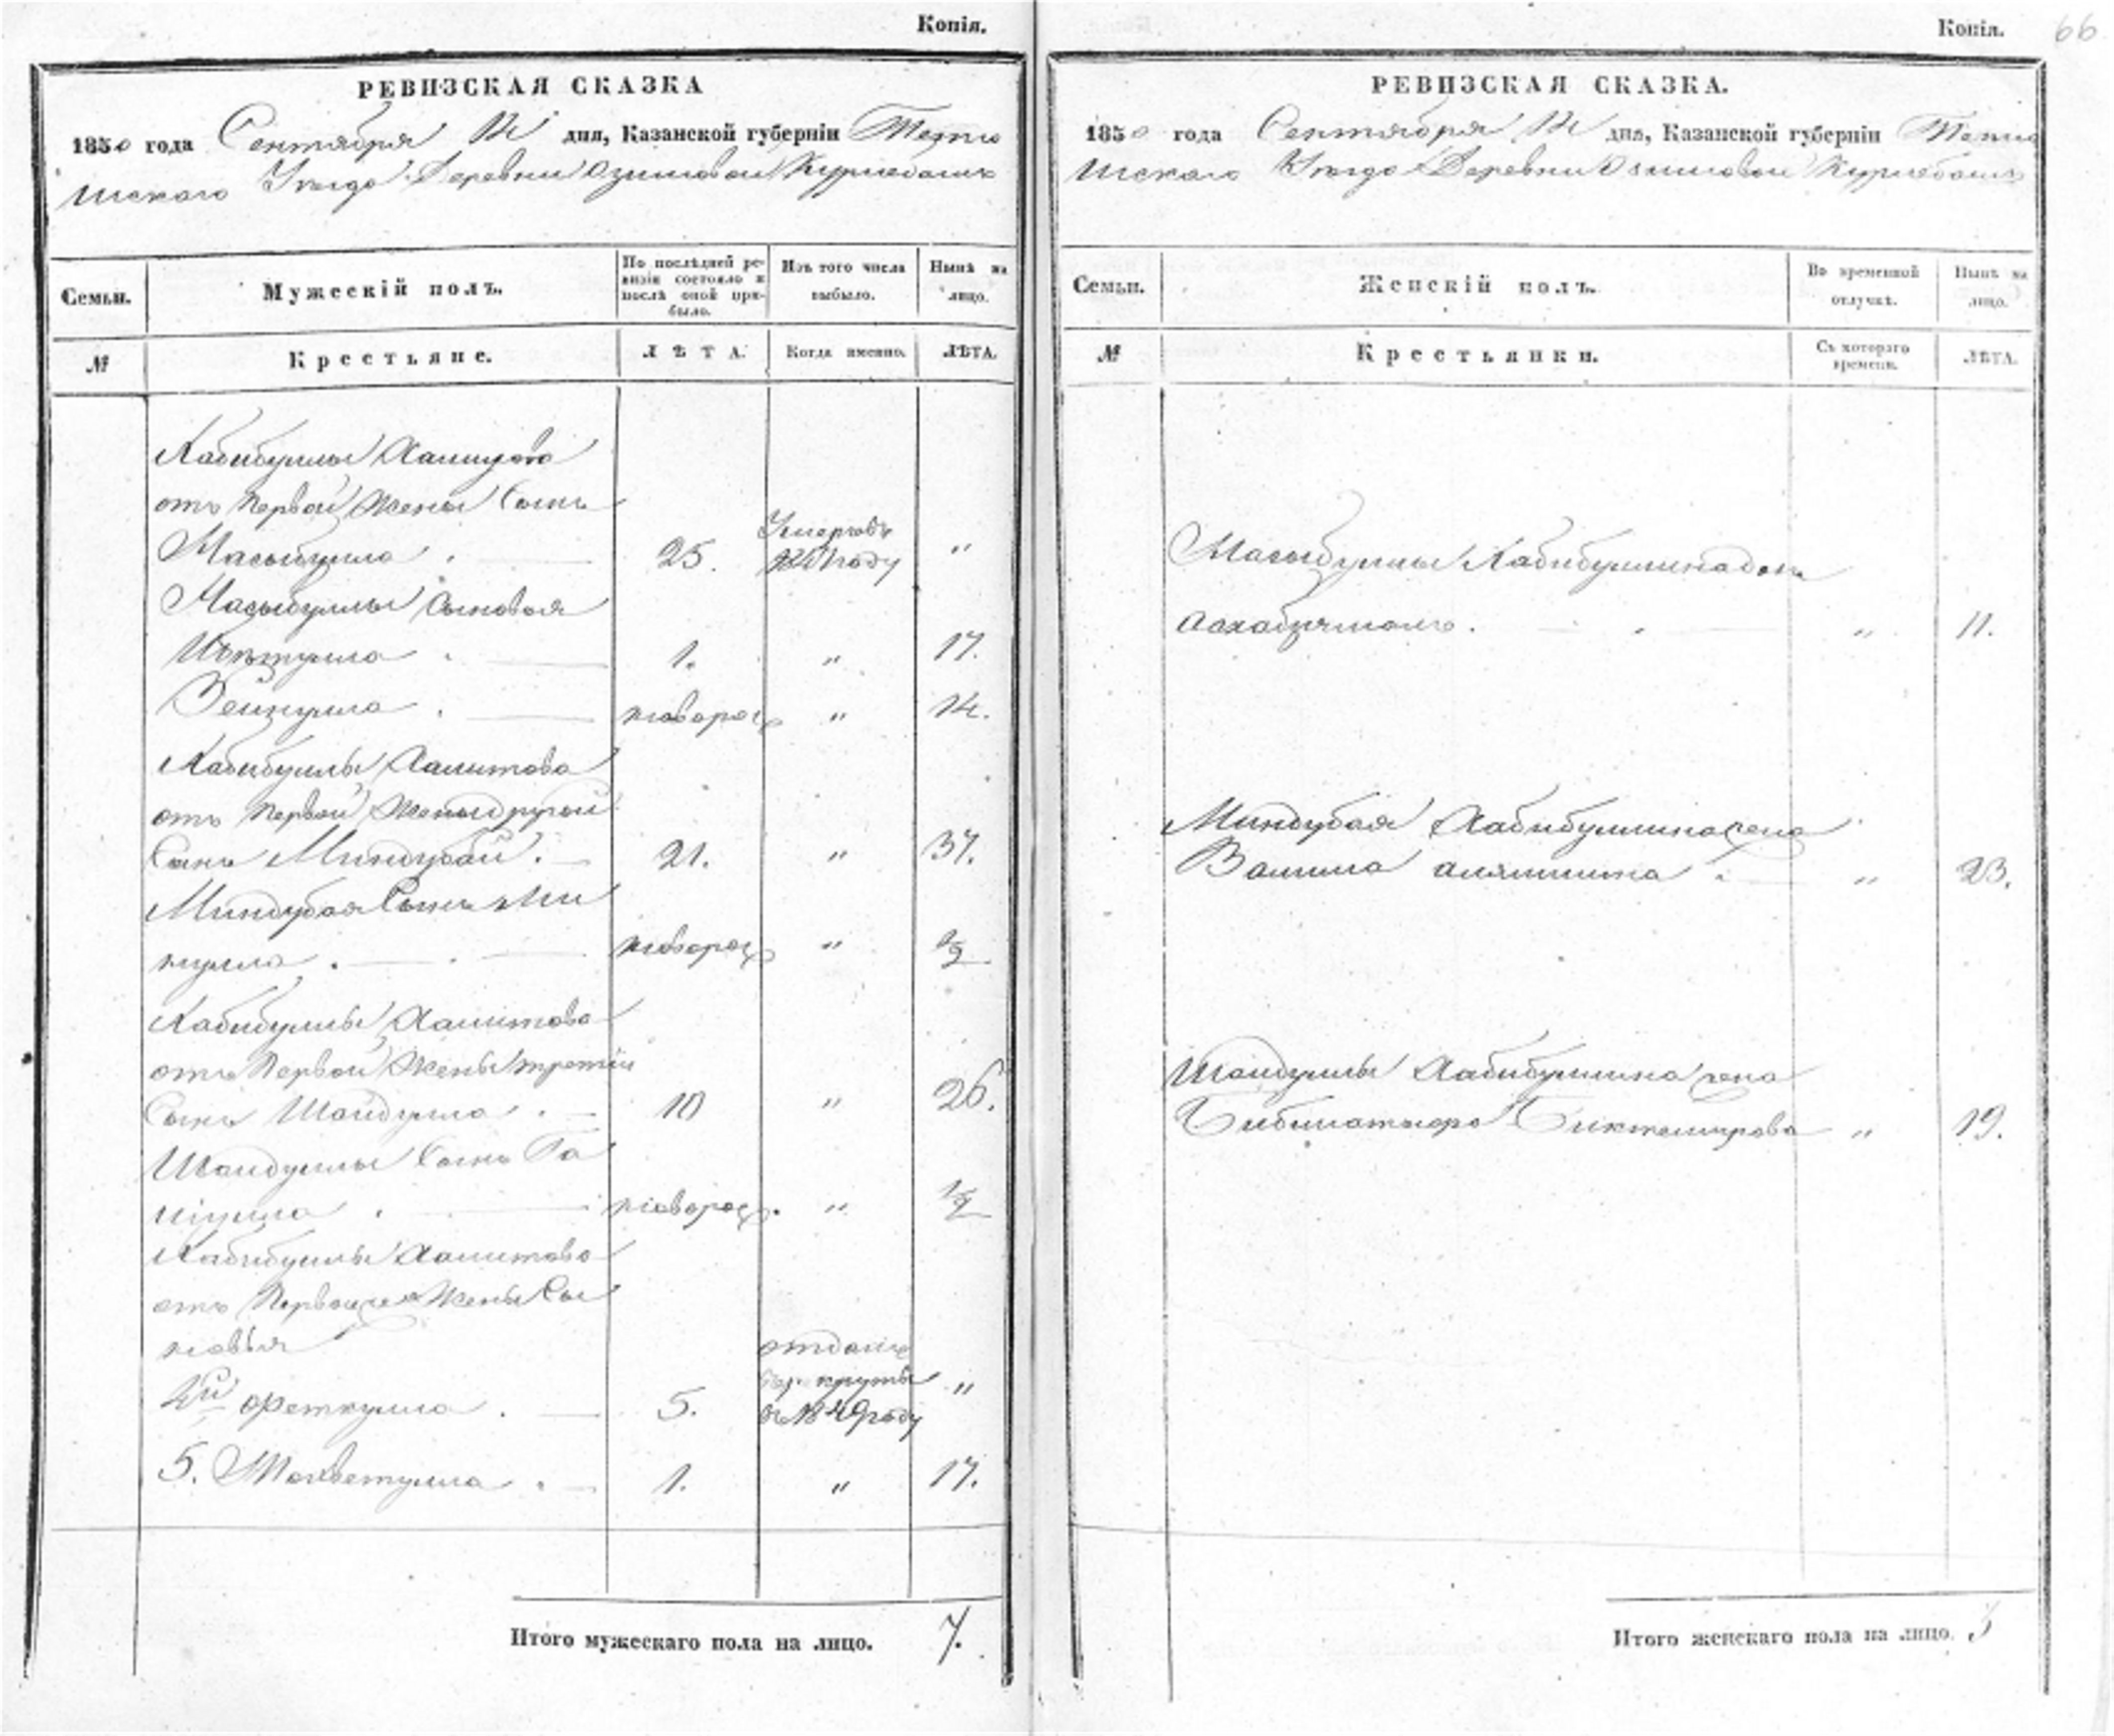 Копія.
РЕВИЗСКАЯ СКАЗКА
1850 года Сентября дня, Казанской губерніи Тетю
шскаго Уезда Деревни Азимовой Курнебашъ
Семьи.
Мужескій полъ.
По послѣдней ре-
визіи состояло и
послѣ оной при-
было.
Изъ того числа
выбыло.
Нынѣ на
лицо.
№
Крестьяне.
ЛѢТА.
Когда именно.
ЛѢТА.
Хабибуллы Хамитова
отъ Первой Жены Сынъ
25. Умеръ въ
году "
сыновья
1. " 17.
Зейнулла . новорож " 14.
Хабибуллы Хамитова
отъ Первой Жены другой
Сынъ Миндубай . 21. " 37.
Миндубая Сынъ Ми
нулла . новорож " 1/2
Хабибуллы Хамитова
отъ Первой Жены третій
Сынъ Шайдулла . 10 " 26.
Шайдуллы Сынъ Га
новорож. " 1/2
Хабибуллы Хамитова
отъ Первой же Жены Сы
новья отданъ
4й Феткулла . 5. рекруты "
въ 1849 году
5. 1. " 17.
Итого мужескаго пола на лицо. 7.
Копія. 66
РЕВИЗСКАЯ СКАЗКА.
1850 года Сентября дня, Казанской губерніи Тетю
шскаго Уезда Деревни Азимовой Курнебашъ
Семьи.
Женскій полъ.
Во временной
отлучкѣ.
Нынѣ на
лицо.
№
Крестьянки.
Съ котораго
времени.
ЛѢТА.
Хабибуллина дочь
" 11.
Миндубая Хабибуллина жена
" 23.
Шайдуллы Хабибуллина жена
Биктемирова " 19.
Итого женскаго пола на лицо. 3